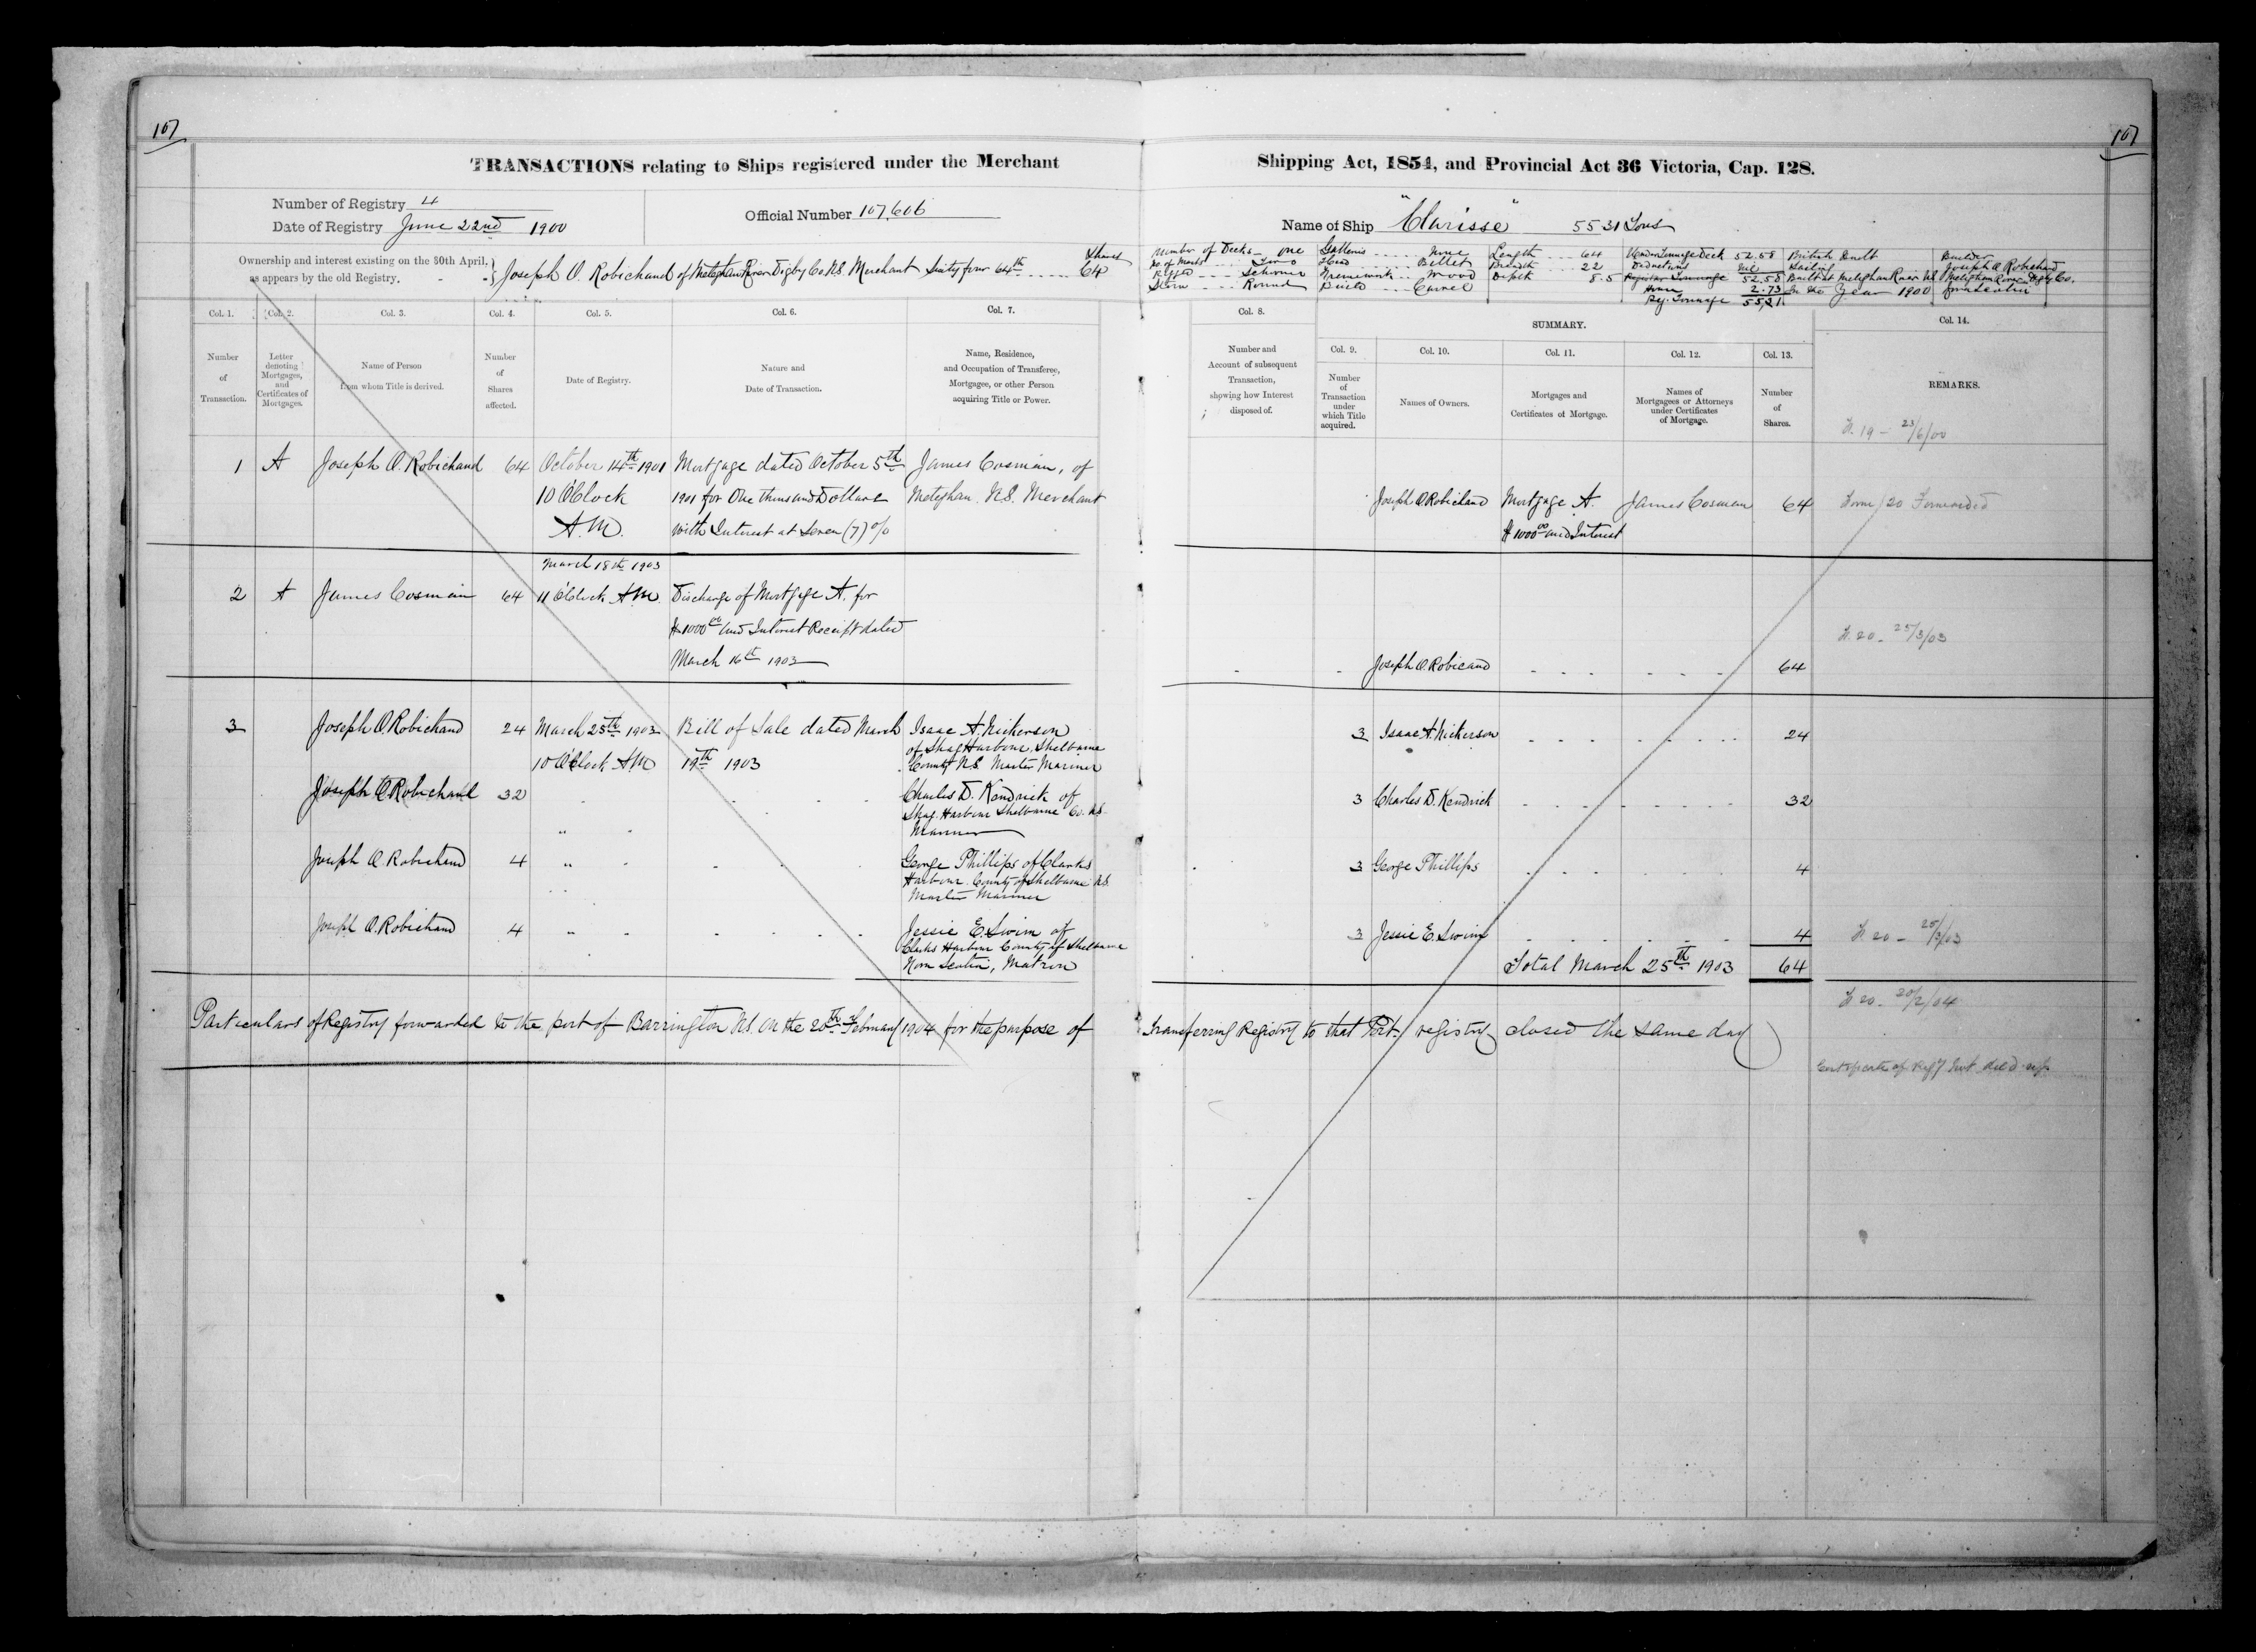 107
107
TRANSACTIONS relating to Ships registered under the Merchant Shipping Act, 1854, and Provincial Act 36 Victoria, Cap. 128.
Number of Registry 4
Date of Registry June 22nd 1900
Official Number 107,606
Name of Ship "Clarisse" 55 31 Tons
Ownership and interest existing on the 30th April,
as appears by the old Registry.
Shares
Joseph O. Robichaud of Meteghan River Digby Co NS. Merchant Sixty four 64th 64
Number of Decks one
No. of Masts Two
Rigged Schooner
Stern Round
Galleries None
Head Billet
Framework Wood
Build Carvel
Length 64
Breadth 22
Depth 8.5
Under Tonnage Deck 52.58
Deductions Nil
Register Tonnage 52.58
House 2.73
Reg. Tonnage 55.31
British Built
Sailing
Built at Meteghan River NS
In the Year 1900
Builder
Joseph O. Robichaud
Meteghan River Digby Co.
Nova Scotia
Col. 1.
Col. 2.
Col. 3.
Col. 4.
Col. 5.
Col. 6.
Col. 7.
Col. 8.
SUMMARY.
Col. 9.
Col. 10.
Col. 11.
Col. 12.
Col. 13.
Col. 14.
Number
of
Transaction.
Letter
denoting
Mortgages,
and
Certificates of
Mortgages.
Name of Person
from whom Title is derived.
Number
of
Shares
affected.
Date of Registry.
Nature and
Date of Transaction.
Name, Residence,
and Occupation of Transferee,
Mortgagee, or other Person
acquiring Title or Power.
Number and
Account of subsequent
Transaction,
showing how Interest
disposed of.
Number
of
Transaction
under
which Title
acquired.
Names of Owners.
Mortgages and
Certificates of Mortgage.
Names of
Mortgagees or Attorneys
under Certificates
of Mortgage.
Number
of
Shares.
REMARKS.
F. 19 - 23/6/00
1 A Joseph O. Robichaud 64 October 14th 1901
10 O'Clock
A.M.
Mortgage dated October 5th
1901 for One thousand Dollars
with Interest at Seven (7) %
James Cosman, of
Meteghan. N.S. Merchant
Joseph O Robichaud Mortgage A. James Cosman 64
$1000.00 and Interest
Form 20 Forwarded
2 A James Cosman 64
March 18th 1903
11 O'Clock A.M.
Discharge of Mortgage A. for
$1000.00 and Interest Receipt dated
March 16th 1903
Joseph O. Robicaud 64
F. 20 - 25/3/03
3 Joseph O. Robichaud 24 March 25th 1903
10 O'Clock A.M.
Bill of Sale dated March
19th 1903
Isaac A. Nickerson
of Shag Harbour, Shelburne
County N.S. Master Mariner
3 Isaac A. Nickerson 24
Joseph O. Robichaud 32
Charles D. Kendrick of
Shag Harbour Shelburne Co. N.S.
Mariner
3 Charles D. Kendrick 32
Joseph O. Robichaud 4
George Phillips of Clarks
Harbour County of Shelburne N.S.
Master Mariner
3 George Phillips 4
Joseph O. Robichaud 4
Jessie E. Swim of
Clarks Harbour County of Shelburne
Nova Scotia, Matron
3 Jessie E. Swim 4
F. 20 - 25/3/03
Total March 25th 1903 64
F. 20 - 20/2/04
Particulars of Registry forwarded to the port of Barrington N.S. On the 20th February 1904 for the purpose of transferring Registry to that Port, registry closed the same day
Certificate of Reg'y not deld. up